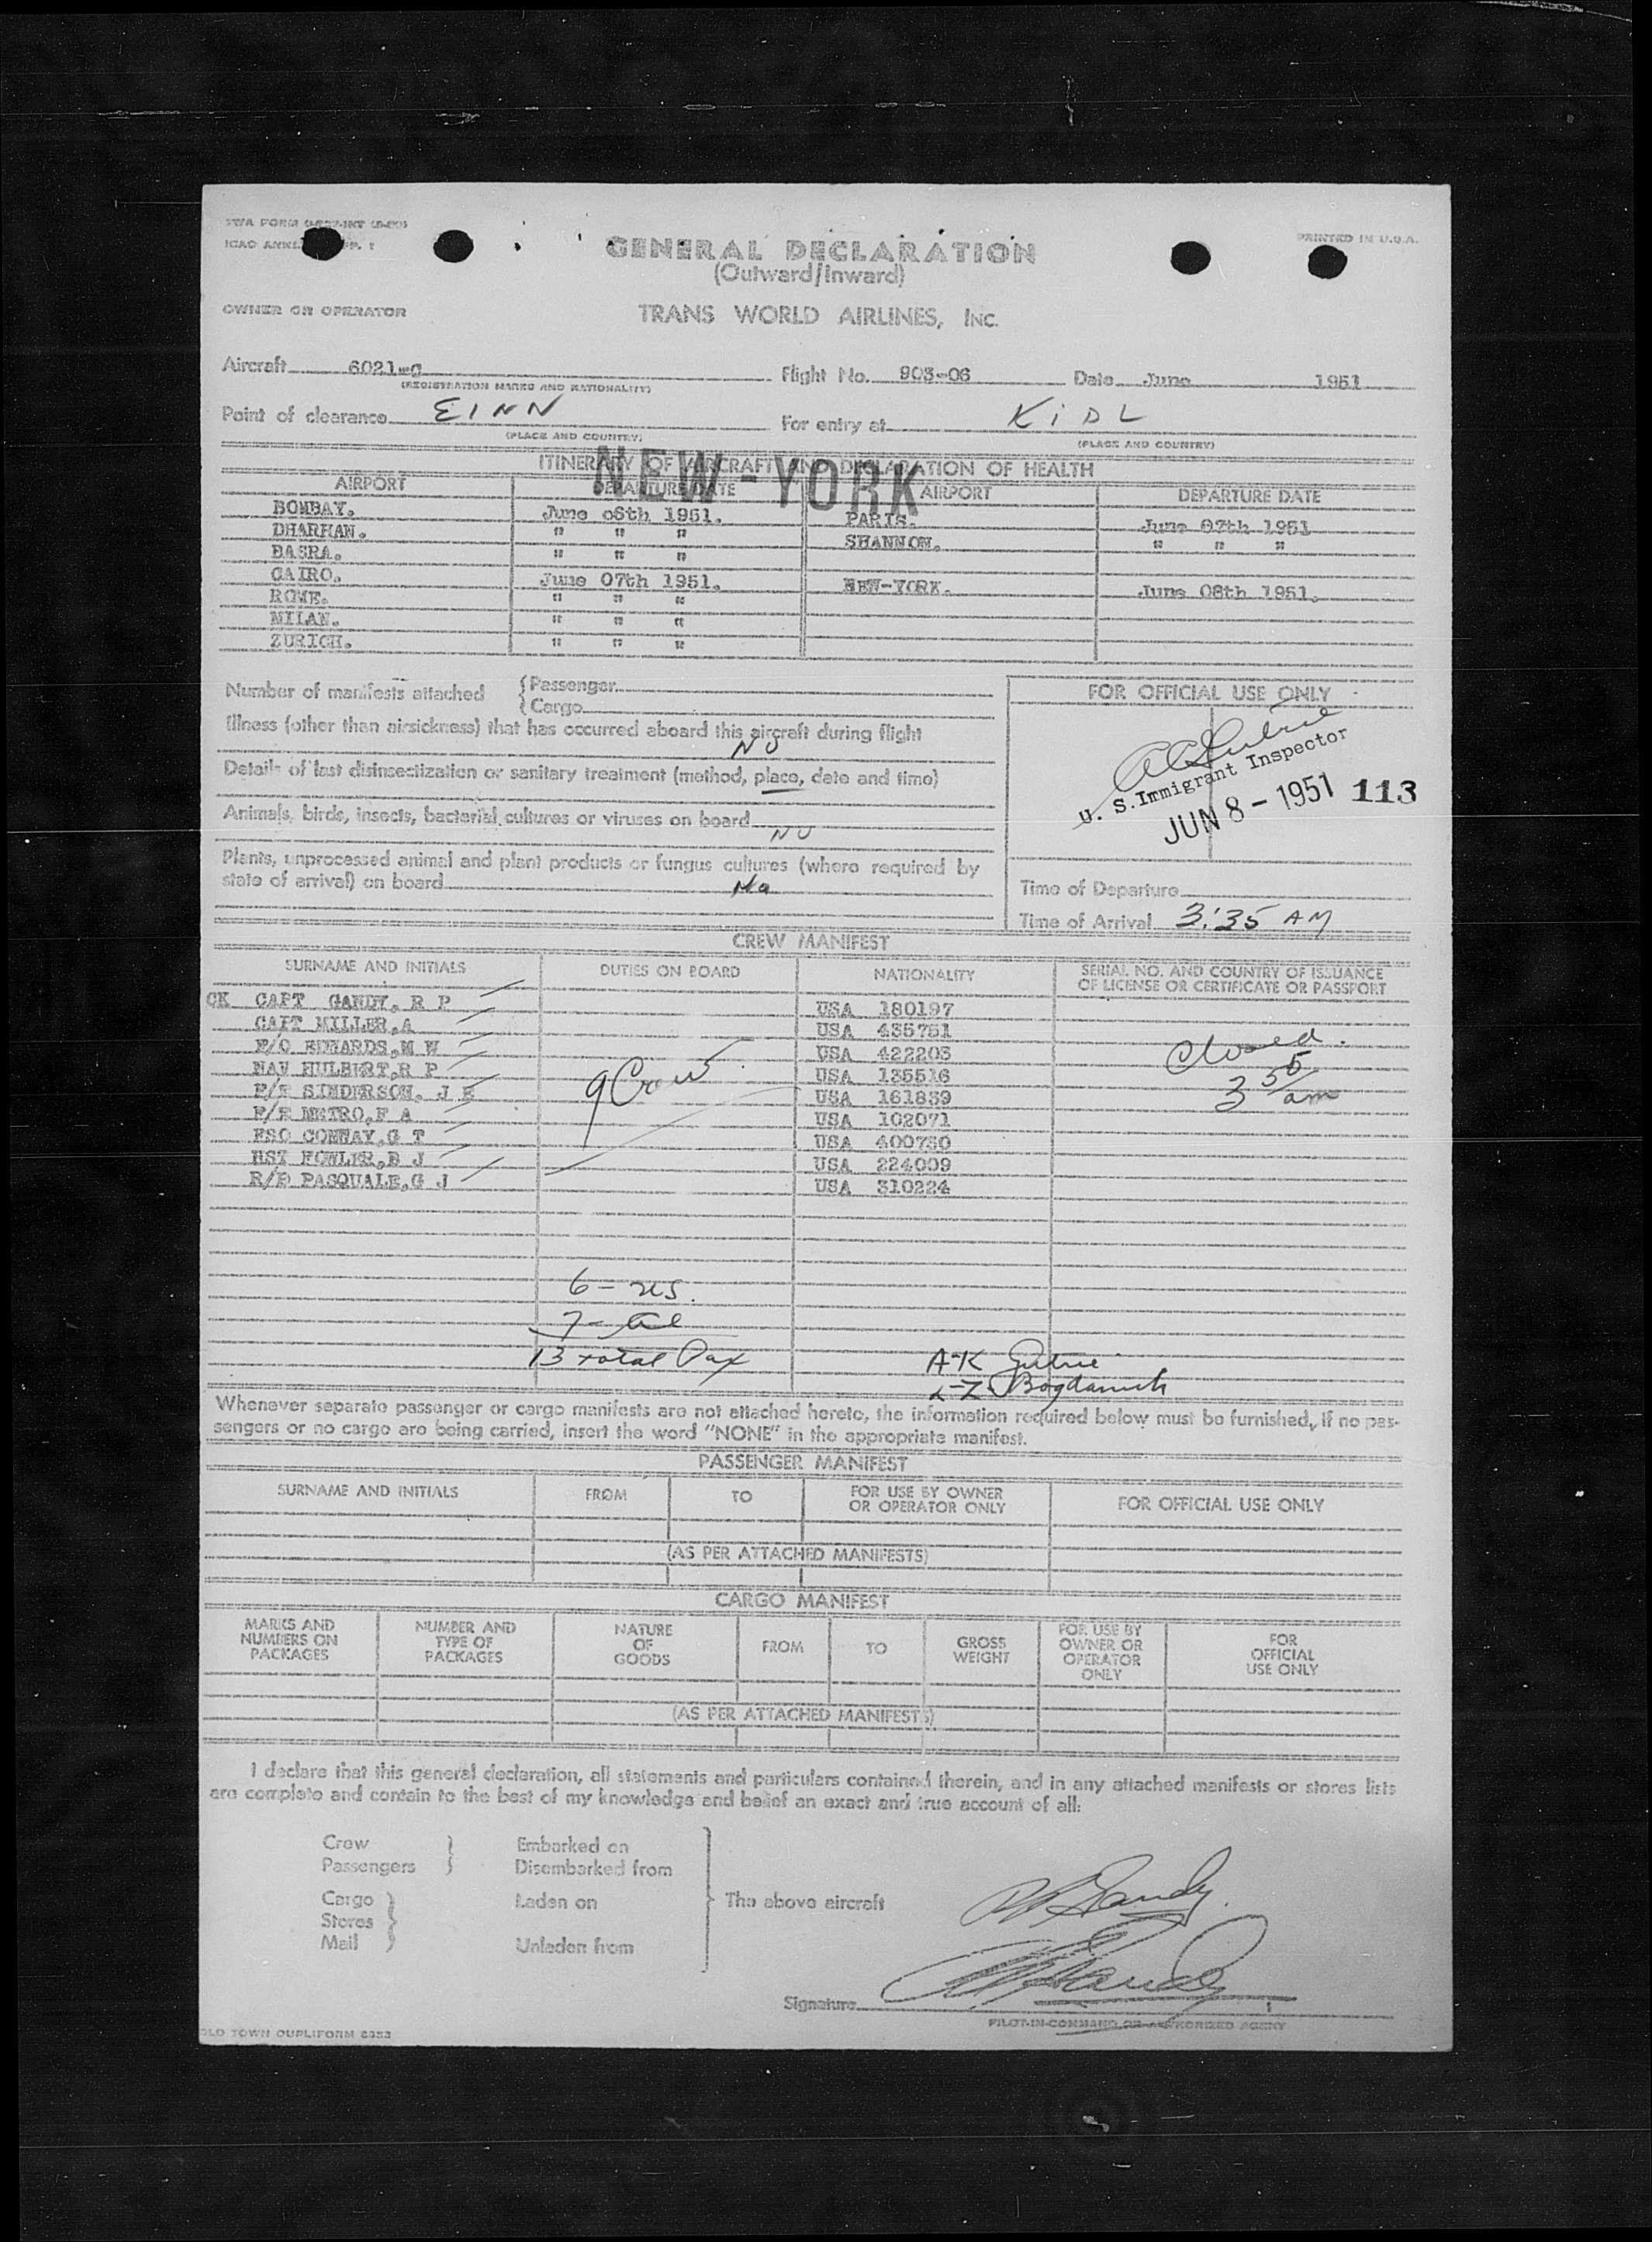 PRINTED IN U.S.A.
GENERAL DECLARATION
(Outward/Inward)
OWNER OR OPERATOR TRANS WORLD AIRLINES, INC.
Aircraft 6021-C Flight No. 903-06 Date June 1951
(REGISTRATION MARKS AND NATIONALITY)
Point of clearance EINN For entry at KIDL
(PLACE AND COUNTRY) (PLACE AND COUNTRY)
NEW-YORK
ITINERARY OF AIRCRAFT AND DECLARATION OF HEALTH
AIRPORT DEPARTURE DATE AIRPORT DEPARTURE DATE
BOMBAY. June 06th 1951. PARIS. June 07th 1951
DHARHAN. " " " SHANNON. " " "
BASRA. " " "
CAIRO. June 07th 1951. NEW-YORK. June 08th 1951.
ROME. " " "
MILAN. " " "
ZURICH. " " "
Number of manifests attached {Passenger
{Cargo
FOR OFFICIAL USE ONLY
Illness (other than airsickness) that has occurred aboard this aircraft during flight
NO
Details of last disinsectization or sanitary treatment (method, place, date and time)
U. S. Immigrant Inspector
JUN 8 - 1951 113
Animals, birds, insects, bacterial cultures or viruses on board
NO
Plants, unprocessed animal and plant products or fungus cultures (where required by
state of arrival) on board No
Time of Departure
Time of Arrival 3:35 AM
CREW MANIFEST
SURNAME AND INITIALS DUTIES ON BOARD NATIONALITY SERIAL NO. AND COUNTRY OF ISSUANCE
OF LICENSE OR CERTIFICATE OR PASSPORT
CK CAPT GANDY, R P USA 180197
CAPT MILLER, A USA 435751
F/O EDWARDS, M W USA 422203
NAV HULBERT, R P USA 135516
F/E SINDERSON, J E USA 161839
F/E METRO, F A USA 102071
FSO CONWAY, G T USA 400730
HST FOWLER, B J USA 224009
R/P PASQUALE, G J USA 310224
9 Crew
Closed.
3 55 am
6 - US.
7 - Al
13 total Pax
A-K Gutrie
L-Z Bogdanich
Whenever separate passenger or cargo manifests are not attached hereto, the information required below must be furnished, if no pas-
sengers or no cargo are being carried, insert the word "NONE" in the appropriate manifest.
PASSENGER MANIFEST
SURNAME AND INITIALS FROM TO FOR USE BY OWNER
OR OPERATOR ONLY FOR OFFICIAL USE ONLY
(AS PER ATTACHED MANIFESTS)
CARGO MANIFEST
MARKS AND
NUMBERS ON
PACKAGES NUMBER AND
TYPE OF
PACKAGES NATURE
OF
GOODS FROM TO GROSS
WEIGHT FOR USE BY
OWNER OR
OPERATOR
ONLY FOR
OFFICIAL
USE ONLY
(AS PER ATTACHED MANIFESTS)
I declare that this general declaration, all statements and particulars contained therein, and in any attached manifests or stores lists
are complete and contain to the best of my knowledge and belief an exact and true account of all:
Crew } Embarked on
Passengers } Disembarked from
Cargo } Laden on The above aircraft
Stores
Mail } Unladen from
R P Gandy
Signature R P Gandy
PILOT-IN-COMMAND OR AUTHORIZED AGENT
OLD TOWN DUPLIFORM 8353